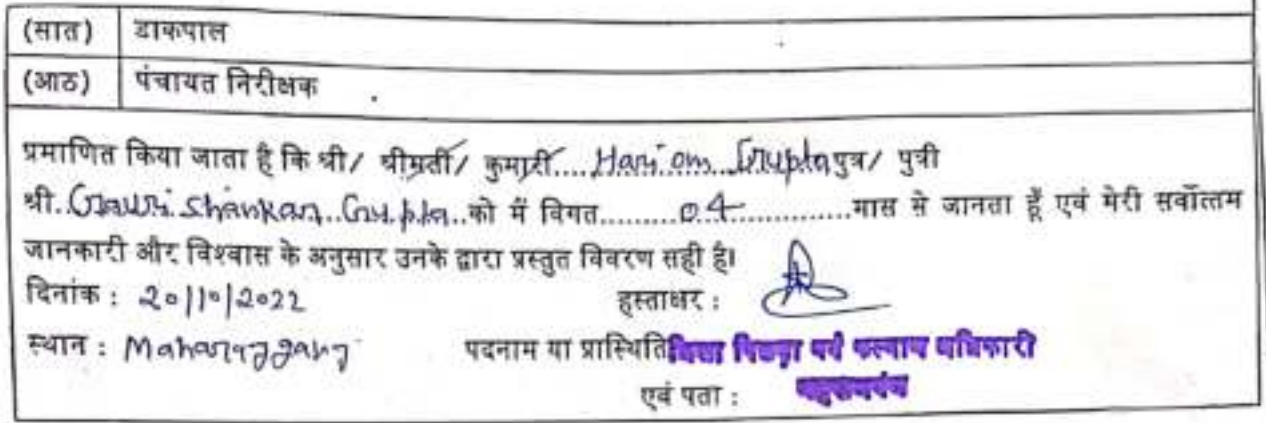 (सात) डाकपाल
(आठ) पंचायत निरीक्षक
प्रमाणित किया जाता है कि श्री/ श्रीमती/ कुमारी.... Hari om Gupta पुत्र/ पुत्री
श्री.. Gauri shankar Gupta ..को में विगत........04..............मास से जानता हूँ एवं मेरी सर्वोत्तम
जानकारी और विश्वास के अनुसार उनके द्वारा प्रस्तुत विवरण सही है।
दिनांक : 20/10/2022 हस्ताक्षर :
स्थान : Maharajganj पदनाम या प्रास्थिति जिला पिछड़ा वर्ग कल्याण अधिकारी
एवं पता : महराजगंज